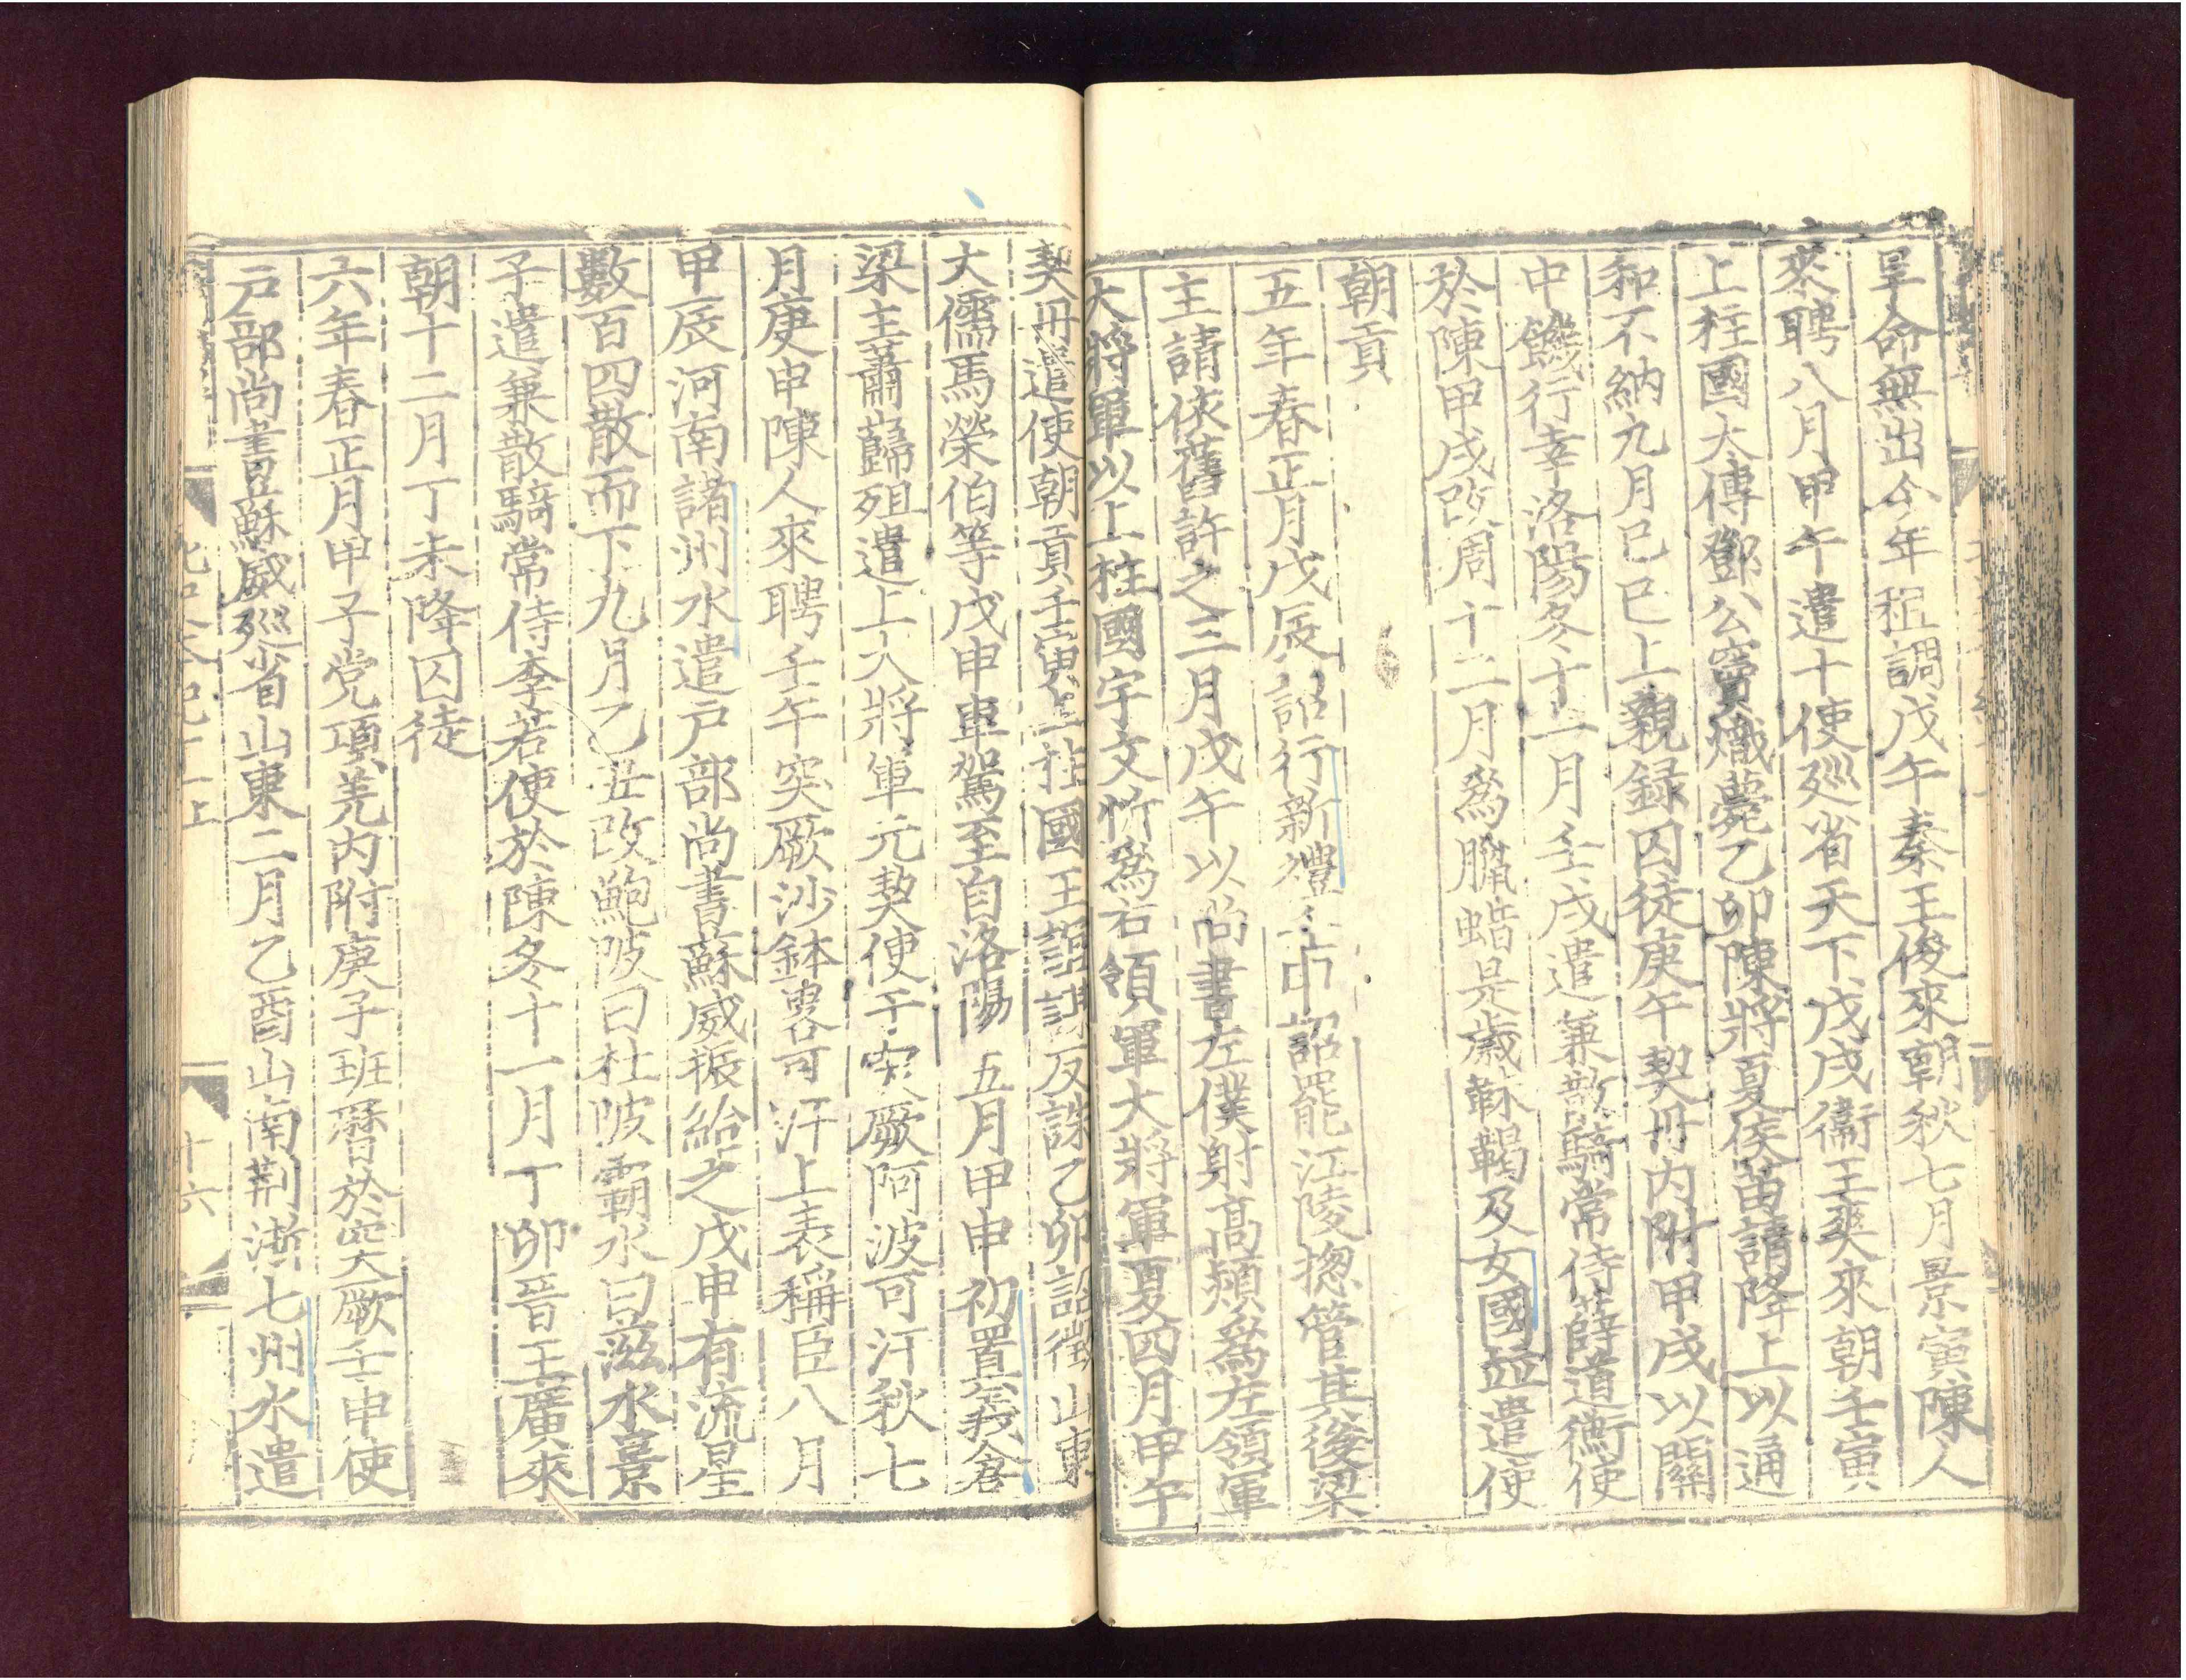 旱命無出今年租調戊午秦王俊來朝秋七月景寅陳人
來聘八月甲午遣十使廵省天下戊戌衞王爽來朝壬寅
上柱國太傅鄧公竇熾薨乙卯陳將夏侯苗請降上以通
和不納九月己巳上親録囚徒庚午契丹内附甲戌以關
中饑行幸洛陽冬十一月壬戌遣兼散騎常侍薛道衡使
於陳甲戌改周十二月爲臘蜡是歳靺鞨及女國並遣使
朝貢
五年春正月戊辰詔行新禮 詔罷江陵揔管其後梁
主請依舊許之三月戊午以尚書左僕射高熲爲左領軍
大將軍以上柱國宇文忻爲右領軍大將軍夏四月甲午
契丹遣使朝貢壬寅上柱國王誼謀反誅乙卯詔徵山東
大儒馬榮伯等戊申車駕至自洛陽五月甲申初置義倉
梁主蕭巋殂遣上大將軍元契使于突厥阿波可汗秋七
月庚申陳人來聘壬午突厥沙鉢畧可汗上表稱臣八月
甲辰河南諸州水遣戸部尚書蘇威振給之戊申有流星
數百四散而下九月乙丑改鮑陂曰杜陂霸水曰滋水景
子遣兼散騎常侍李若使於陳冬十一月丁卯晉王廣來
朝十二月丁未降囚徒
六年春正月甲子党項羌内附庚子班曆於突厥壬申使
戸部尚書蘇威廵省山東二月乙酉山南荆淅七州水遣
十六